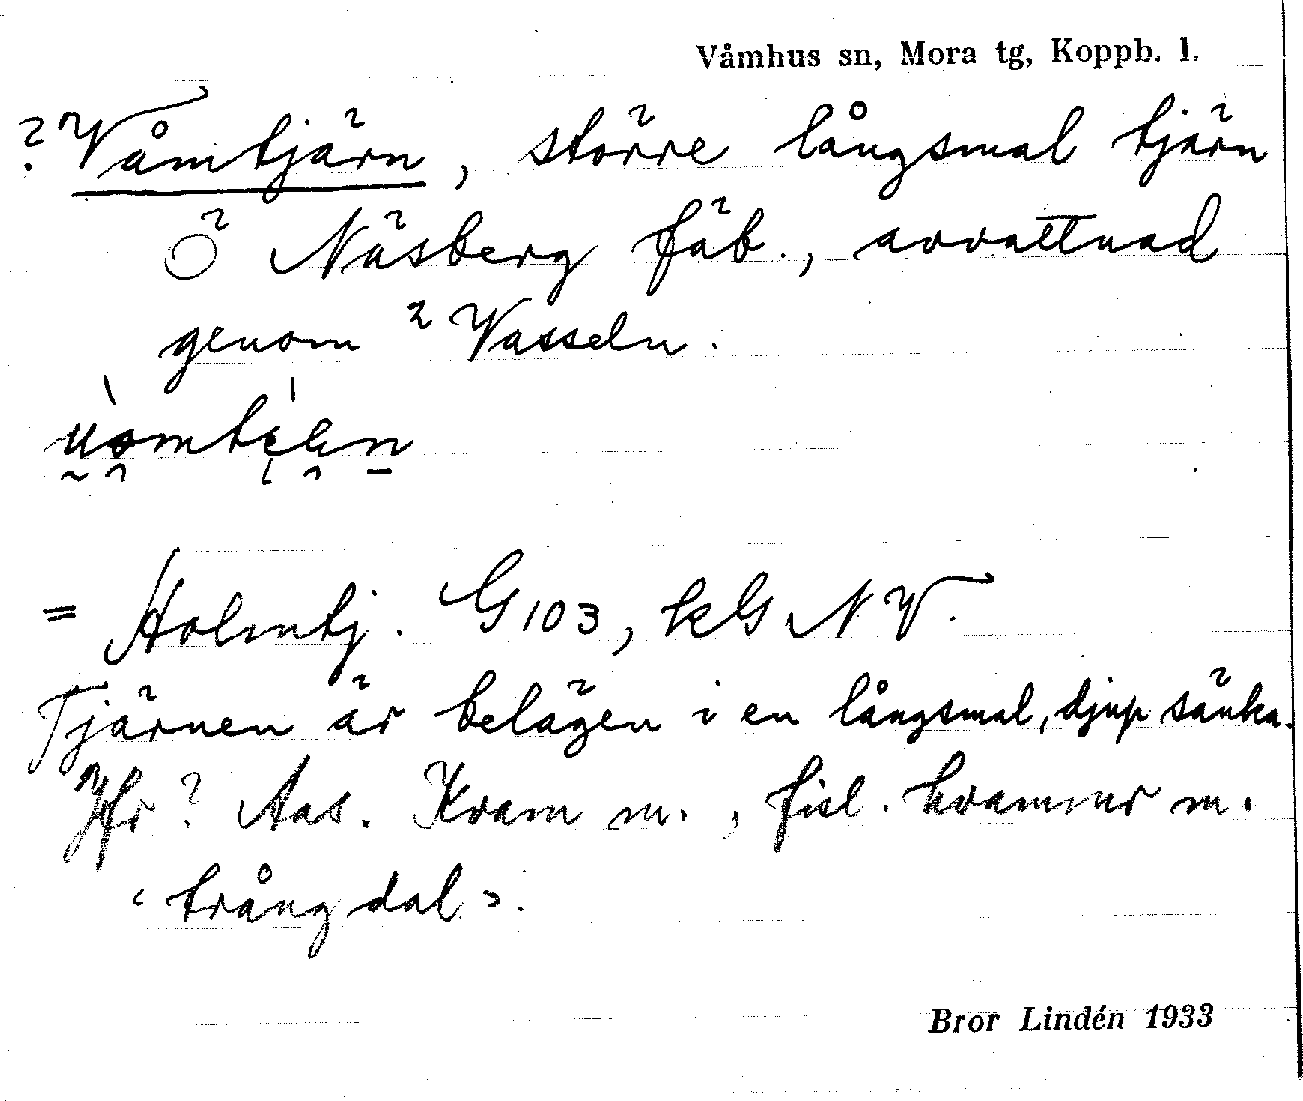 Våmhus sn, Mora tg, Koppb. l.
? Våmtjärn, större långsmal tjärn
Ö Näsberg fäb., avvattnad
genom ? Vasseln.
= Holmtj. G 103, kG NV.
Tjärnen är belägen i en långsmal, djup sänka.
Jfr ? Aas. Kvam m., fisl. hvammr m.
‹trång dal›.
Bror Lindén 1933